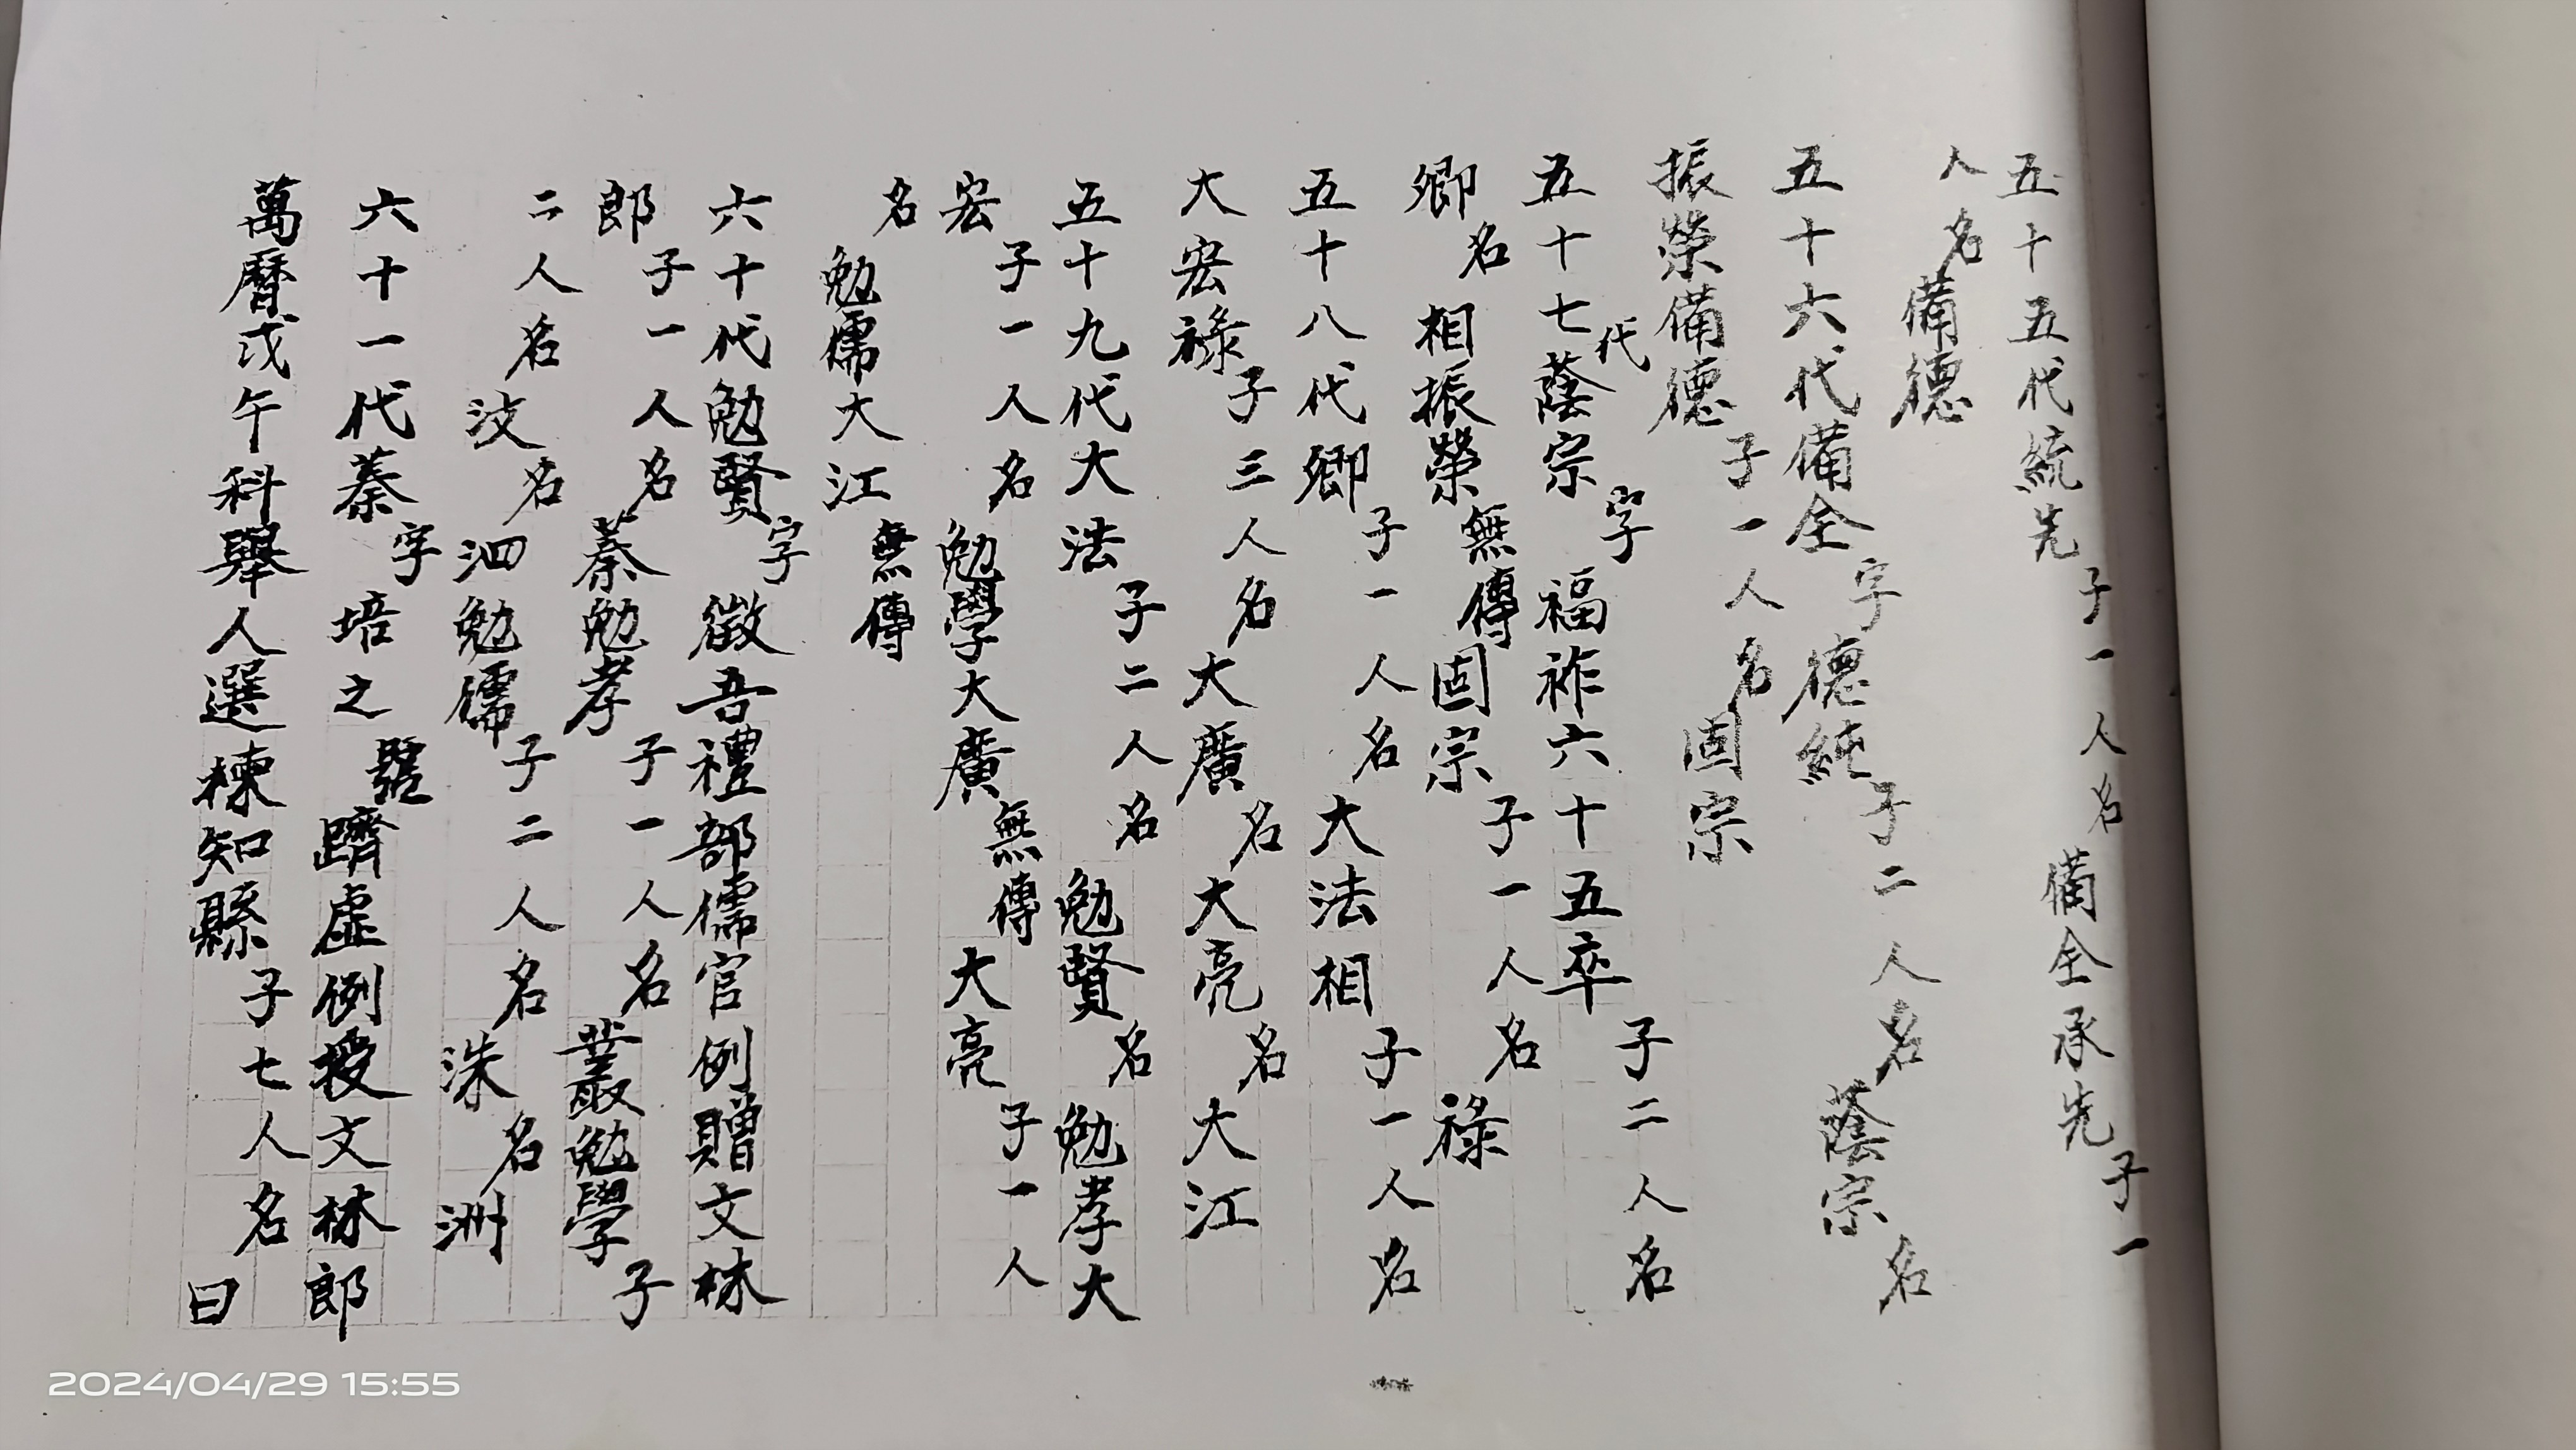 五十五代統先子一人名備全承先子一
人名備德
五十六代備全字德純子二人名蔭宗名
振榮備德子一人名固宗
五十七代蔭宗字福祚六十五卒子二人名
卿名相振榮無傳固宗子一人名祿
五十八代卿子一人名大法相子一人名
大宏祿子三人名大廣名大亮名大江
五十九代大法子二人名勉賢名勉孝大
宏子一人名勉學大廣無傳大亮子一人
名勉儒大江無傳
六十代勉賢字徵吾禮部儒官例贈文林
郎子一人名蓁勉孝子一人名叢勉學子
二人名汶名泗勉儒子二人名洙名洲
六十一代蓁字培之號躋虛例授文林郎
萬曆戊午科舉人選棟知縣子七人名曰
2024/04/29 15:55